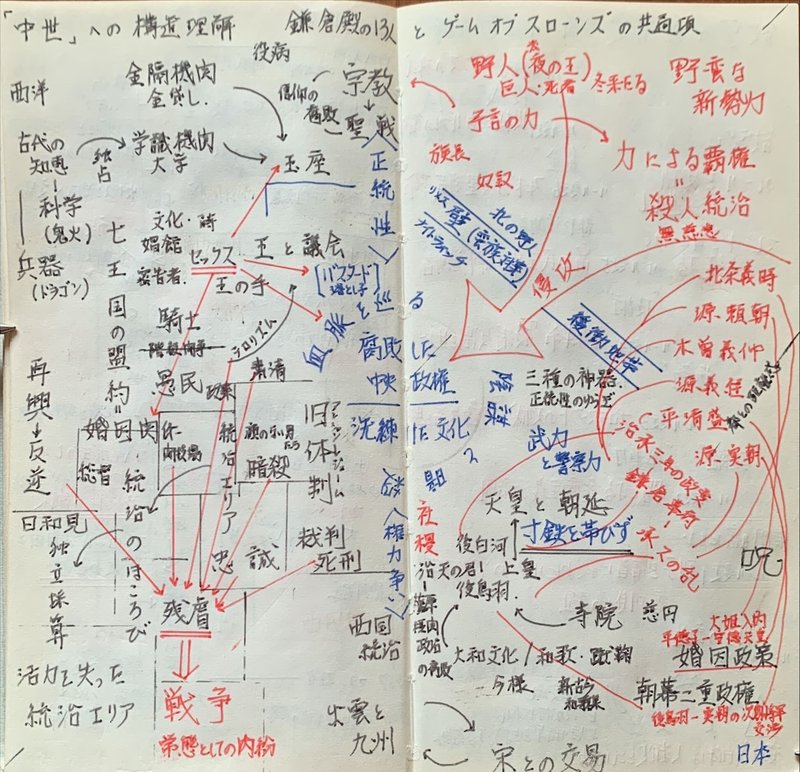 「中世」への構造理解 鎌倉殿の13人とゲームオブスローンズの共通項
西洋
金融機関
金貸し.
役病
信仰の腐敗
宗教
聖戦
古代の知恵
独占
学識機関
大学
玉座
科学
(鬼火)
兵器
(ドラゴン)
七王国の盟約=統治のほころび
文化・詩
娼館
密告者.
セックス
王と議会
王の手
[バスタード
落とし子]
騎士
階級闘争
愚民
テロリズム
粛清
政策
再興→反逆
婚因関係
総督
統治エリア
顔のない男たち
暗殺
旧体制
裁判
死刑
忠誠
日和見
独立採算
残虐
戦争
常態としての内紛
活力を失った
統治エリア
西国
統治
出雲と
九州
(正統性)
血脈を巡る
腐敗した
中央政権
洗練された文化
(権力争い)
陰謀
野人(夜の王)
巨人・死者
冬来たる
予言の力
族長
奴奴
野蛮な
新勢力
力による覇権
=
殺人統治
無慈悲
北の野人
壁
ナイトウォッチ
侵攻
緩衝地帯
北条義時
源頼朝
木曽義仲
源義経
平清盛
源実朝
三種の神器.
正統性のゆらぎ
武力
と警察力
鎌倉幕府
承久の乱
天皇と朝廷
寸鉄を帯びず
社稷
後白河
上皇
治天の君
後鳥羽.
寺院 慈円
呪
大和文化/和歌・蹴鞠
今様
新古今
和歌集
大姫入内
平徳子-安徳天皇
婚因政策
朝幕二重政権
後鳥羽-実朝の次期将軍
交渉
宋との交易
日本